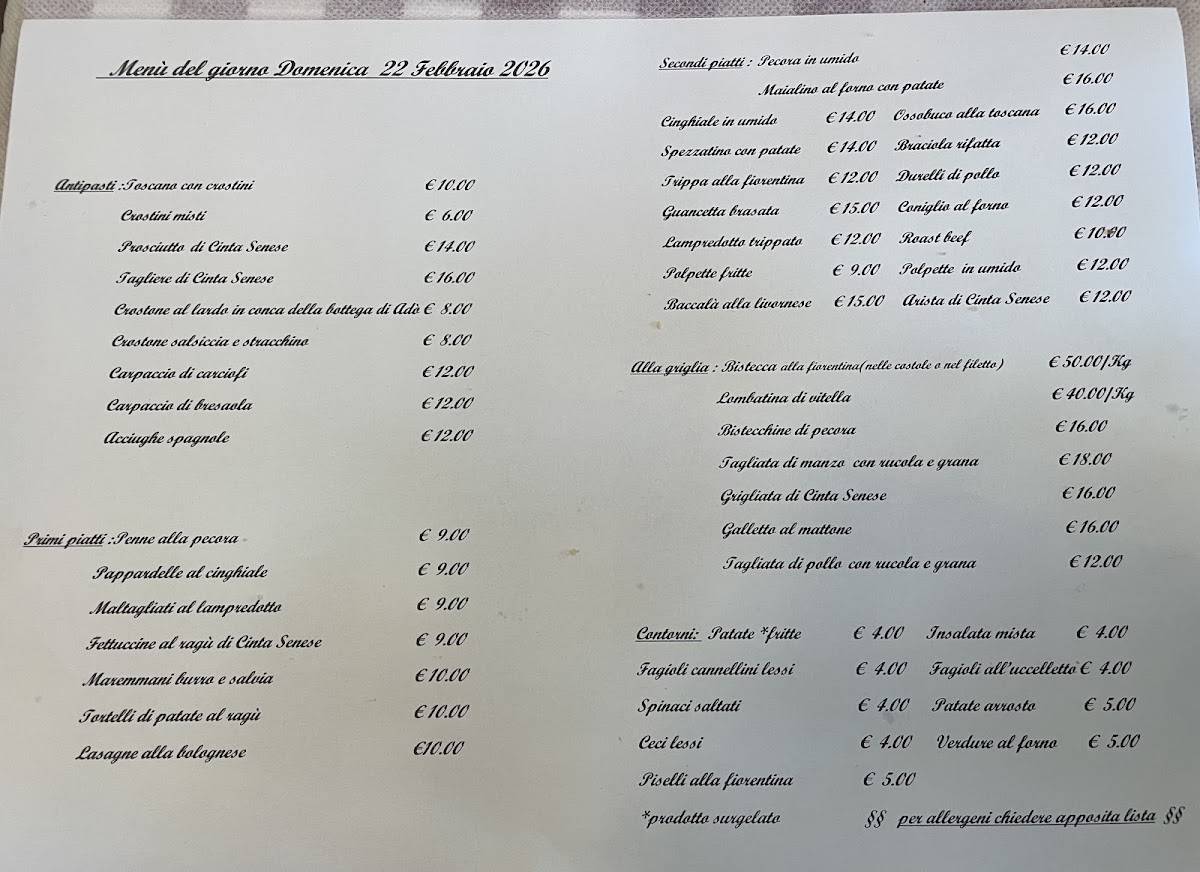 Menù del giorno Domenica 22 Febbraio 2026
Antipasti :Toscano con crostini € 10.00
Crostini misti € 6.00
Prosciutto di Cinta Senese € 14.00
Tagliere di Cinta Senese € 16.00
Crostone al lardo in conca della bottega di Adò € 8.00
Crostone salsiccia e stracchino € 8.00
Carpaccio di carciofi € 12.00
Carpaccio di bresaola € 12.00
Acciughe spagnole € 12.00
Primi piatti :Penne alla pecora € 9.00
Pappardelle al cinghiale € 9.00
Maltagliati al lampredotto € 9.00
Fettuccine al ragù di Cinta Senese € 9.00
Maremmani burro e salvia € 10.00
Tortelli di patate al ragù € 10.00
Lasagne alla bolognese €10.00
Secondi piatti : Pecora in umido € 14.00
Maialino al forno con patate € 16.00
Cinghiale in umido € 14.00 Ossobuco alla toscana € 16.00
Spezzatino con patate € 14.00 Braciola rifatta € 12.00
Trippa alla fiorentina € 12.00 Durelli di pollo € 12.00
Guancetta brasata € 15.00 Coniglio al forno € 12.00
Lampredotto trippato € 12.00 Roast beef € 10.00
Polpette fritte € 9.00 Polpette in umido € 12.00
Baccalà alla livornese € 15.00 Arista di Cinta Senese € 12.00
Alla griglia : Bistecca alla fiorentina(nelle costole o nel filetto) € 50.00/Kg
Lombatina di vitella € 40.00/Kg
Bistecchine di pecora € 16.00
Tagliata di manzo con rucola e grana € 18.00
Grigliata di Cinta Senese € 16.00
Galletto al mattone € 16.00
Tagliata di pollo con rucola e grana € 12.00
Contorni: Patate *fritte € 4.00 Insalata mista € 4.00
Fagioli cannellini lessi € 4.00 Fagioli all'uccelletto € 4.00
Spinaci saltati € 4.00 Patate arrosto € 5.00
Ceci lessi € 4.00 Verdure al forno € 5.00
Piselli alla fiorentina € 5.00
*prodotto surgelato §§ per allergeni chiedere apposita lista §§